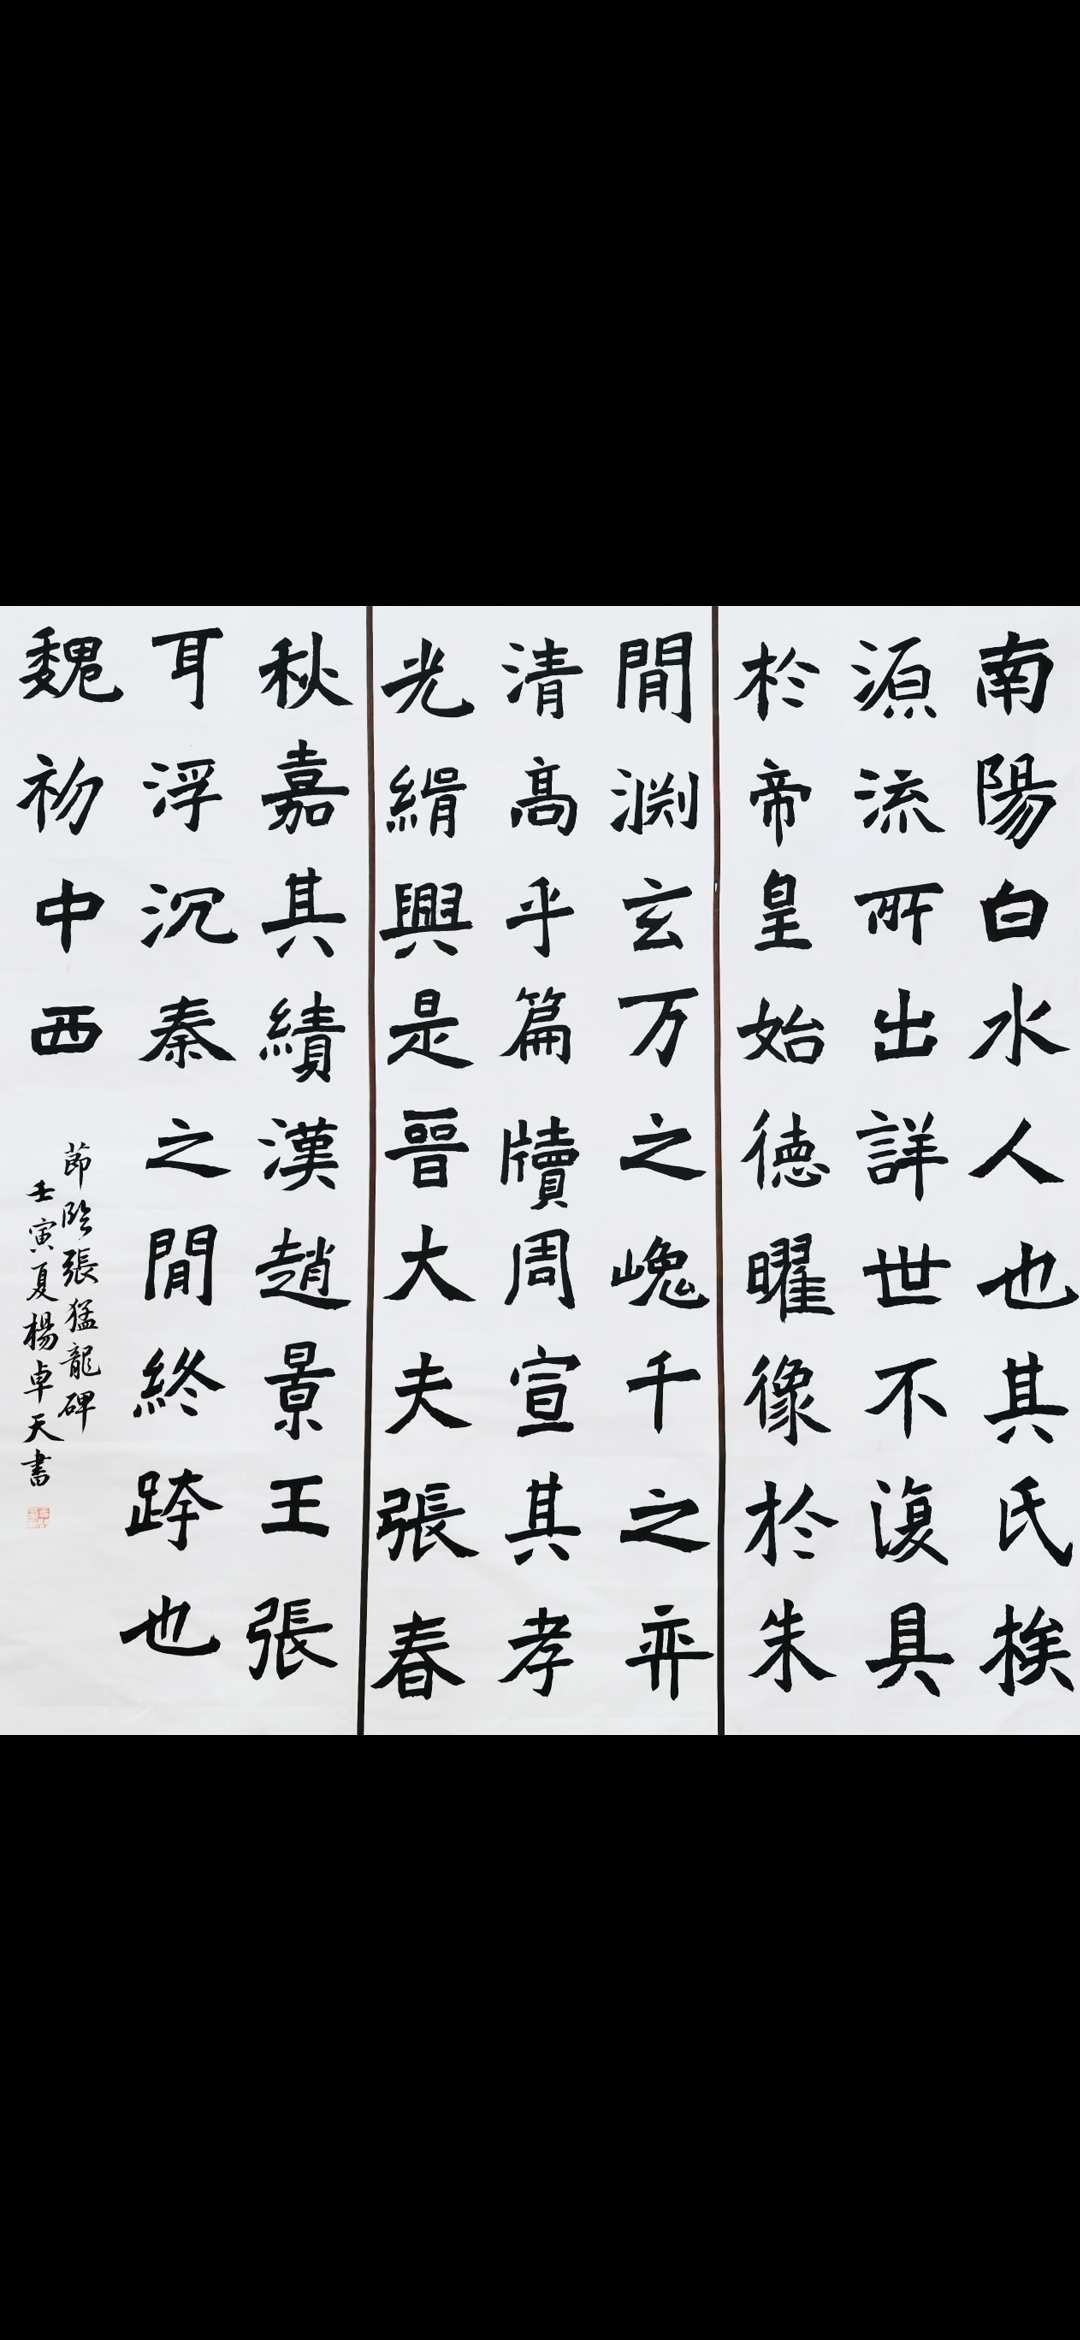 南陽白水人也其氏挨
源流所出詳世不復具
於帝皇始德曜像於朱
閒渊玄万之巉千之弈
清高乎篇牘周宣其孝
光緝興是晉大夫張春
秋嘉其績漢趙景王張
耳浮沉秦之閒終跨也
魏初中西
節臨張猛龍碑
壬寅夏楊卓天書